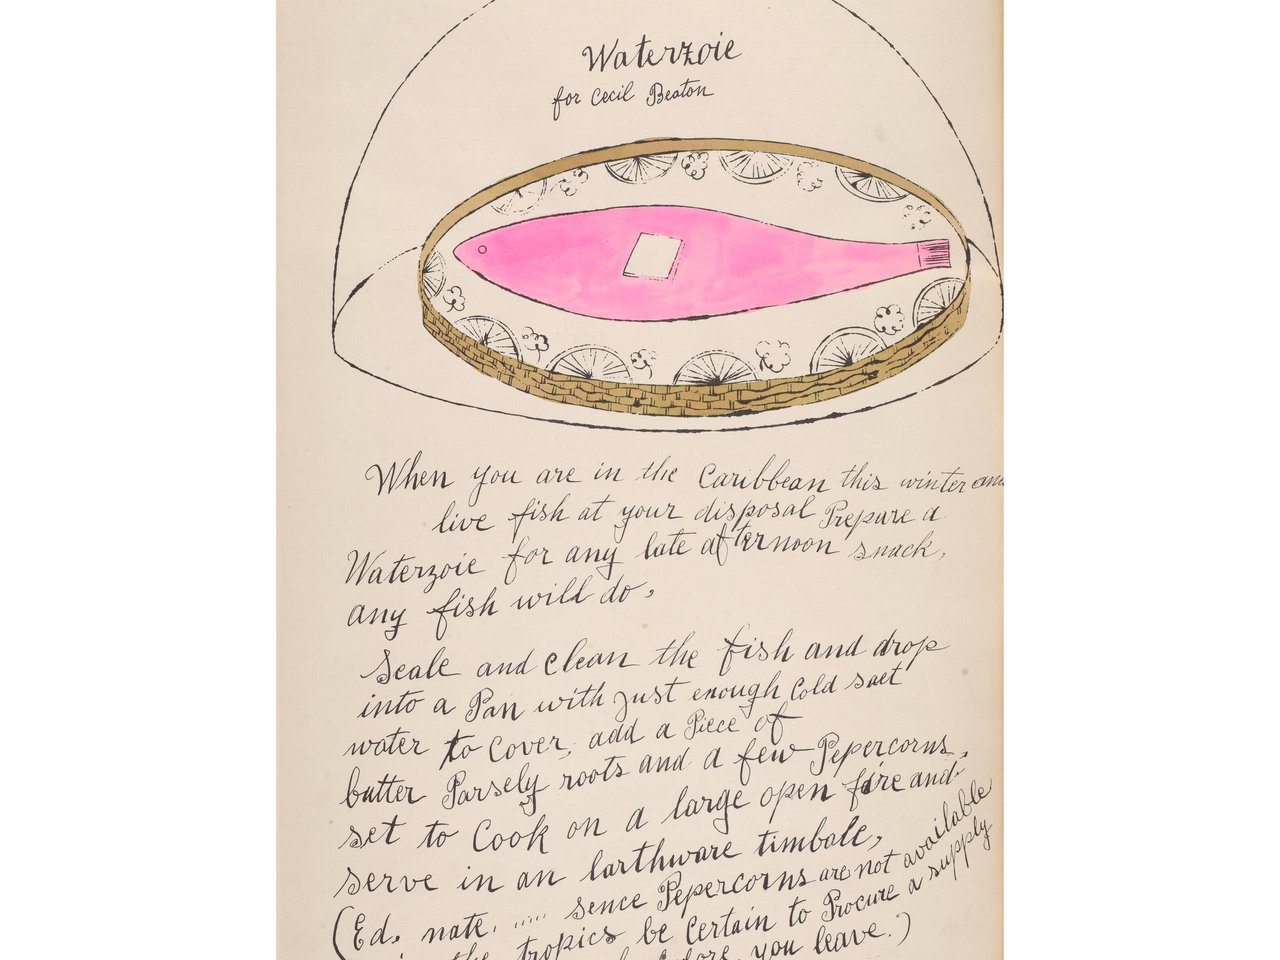 Waterzoie
for Cecil Beaton
When you are in the Caribbean this winter and
live fish at your disposal Prepare a
Waterzoie for any late afternoon snack,
any fish will do,
Scale and clean the fish and drop
into a Pan with just enough Cold salt
water to Cover, add a Piece of
butter Parsely roots and a few Pepercorns,
set to Cook on a large open fire and
serve in an earthware timbale,
(Ed. note. ..... sence Pepercorns are not available
the tropics be Certain to Procure a supply
you leave.)